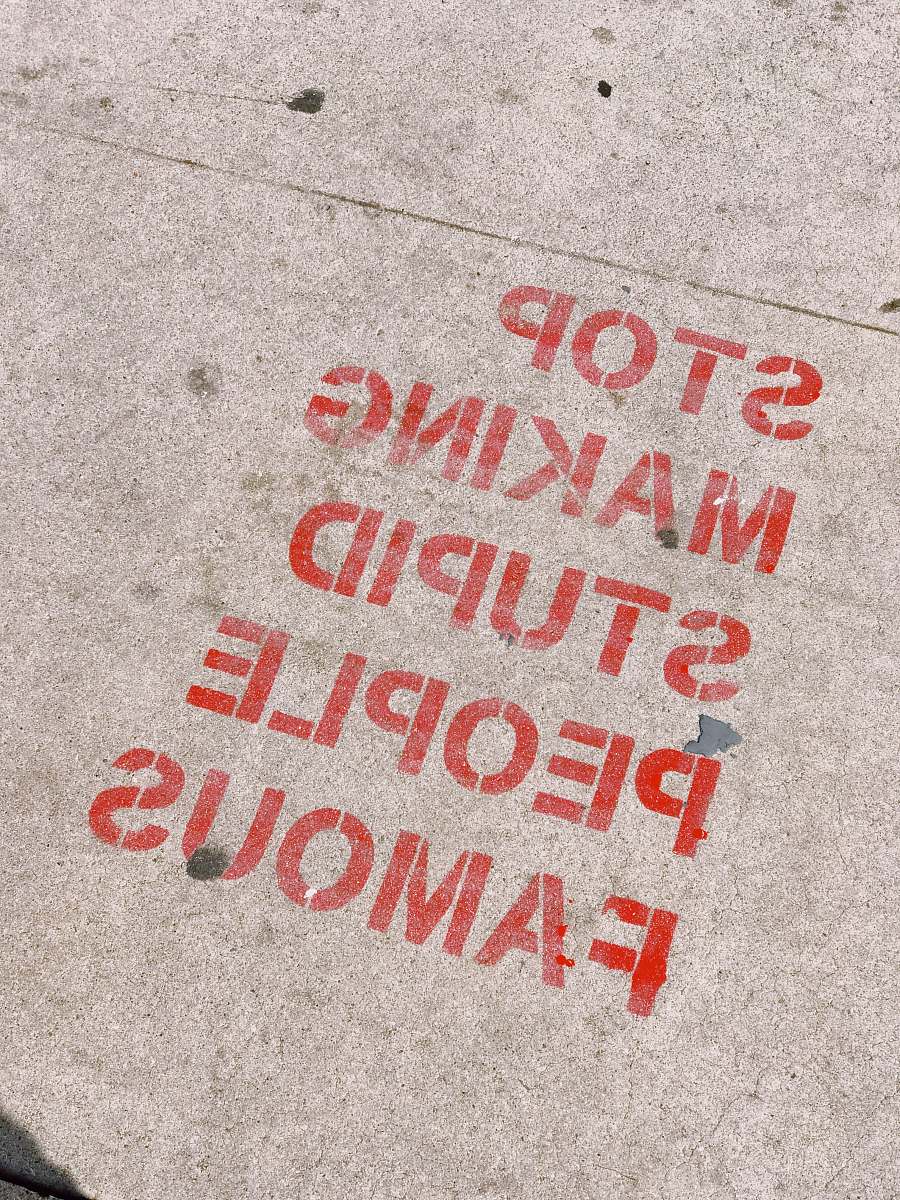 STOP
MAKING
STUPID
PEOPLE
FAMOUS